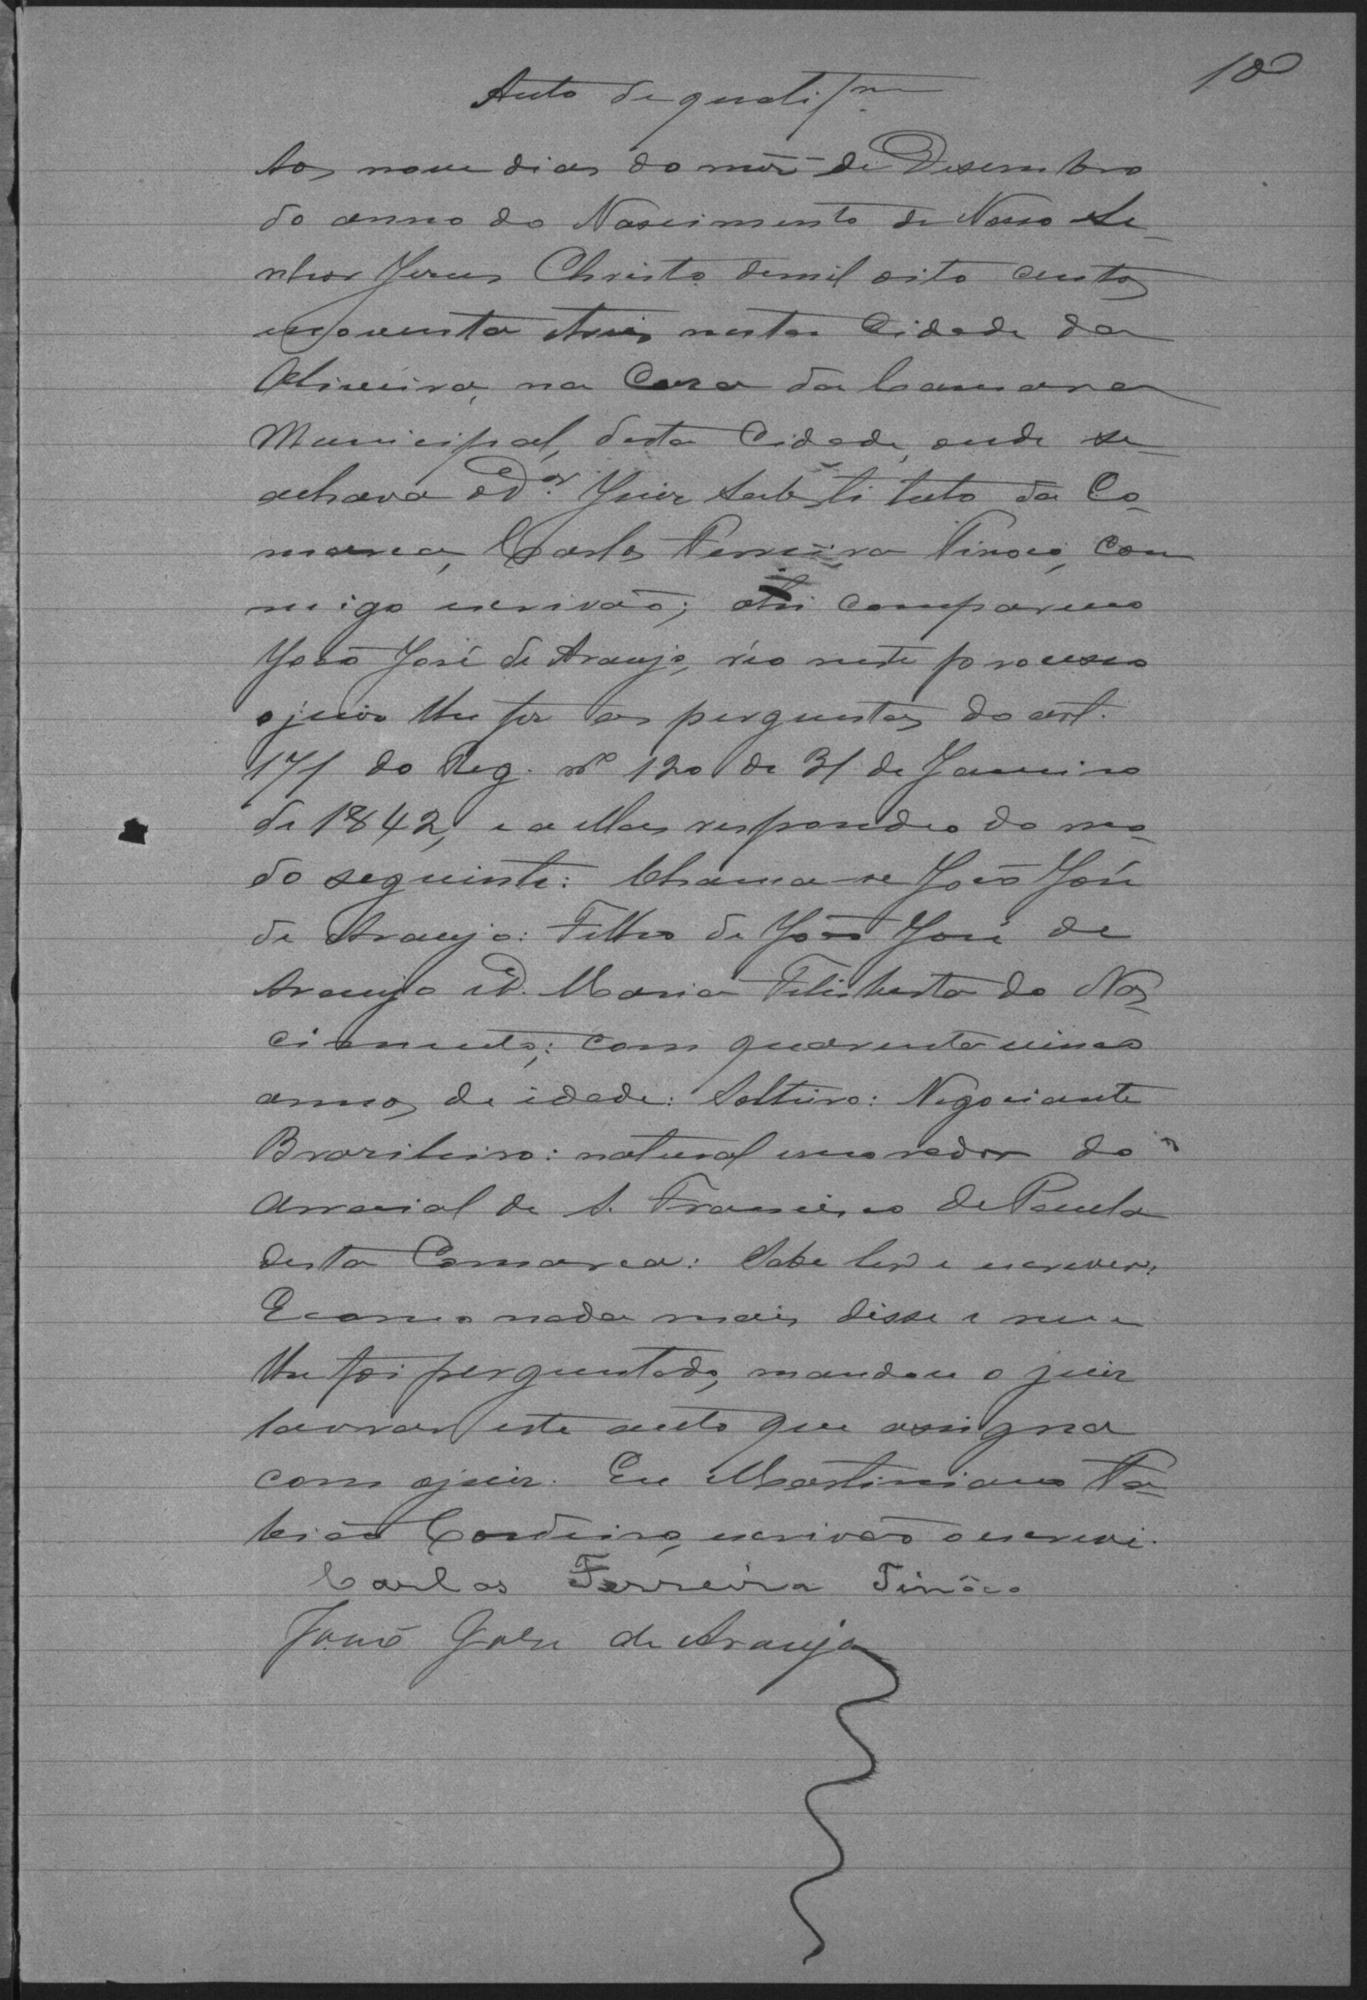 10
Auto de qualif.
Aos nove dias do mez de Desembro
do anno do Nascimento de Nosso Se-
nhor Jesus Christo de mil oito centos
e noventa e tres nesta Cidade da
Oliveira, na Casa da Camara
Municipal, desta Cidade, onde se
achava o Dor. Juiz Substituto da Co-
marca, Carlos Ferreira Tinoco, com
migo escrivão; ahi compareceo
João José de Araujo, réo neste processo
o juiz lhe fez as perguntas do art.
171 do Reg. nº 120 de 31 de Janeiro
de 1842, e a ellas respondeo do mo-
do seguinte: Chama-se João José
de Araujo: Filho de João José de
Araujo e D. Maria Felisberta do Nas-
cimento; com quarenta e cinco
annos de idade: Solteiro: Negociante
Brazileiro: natural e morador do
Arraial de S. Francisco de Paula
desta Comarca: Sabe ler e escrever:
E como nada mais disse e nem
lhe foi perguntado, mandou o juiz
lavrar este auto que assigna
com o juiz. Eu Martiniano Fa-
bião Cordeiro, escrivão o escrevi.
Carlos Ferreira Tinôco
João José de Araujo